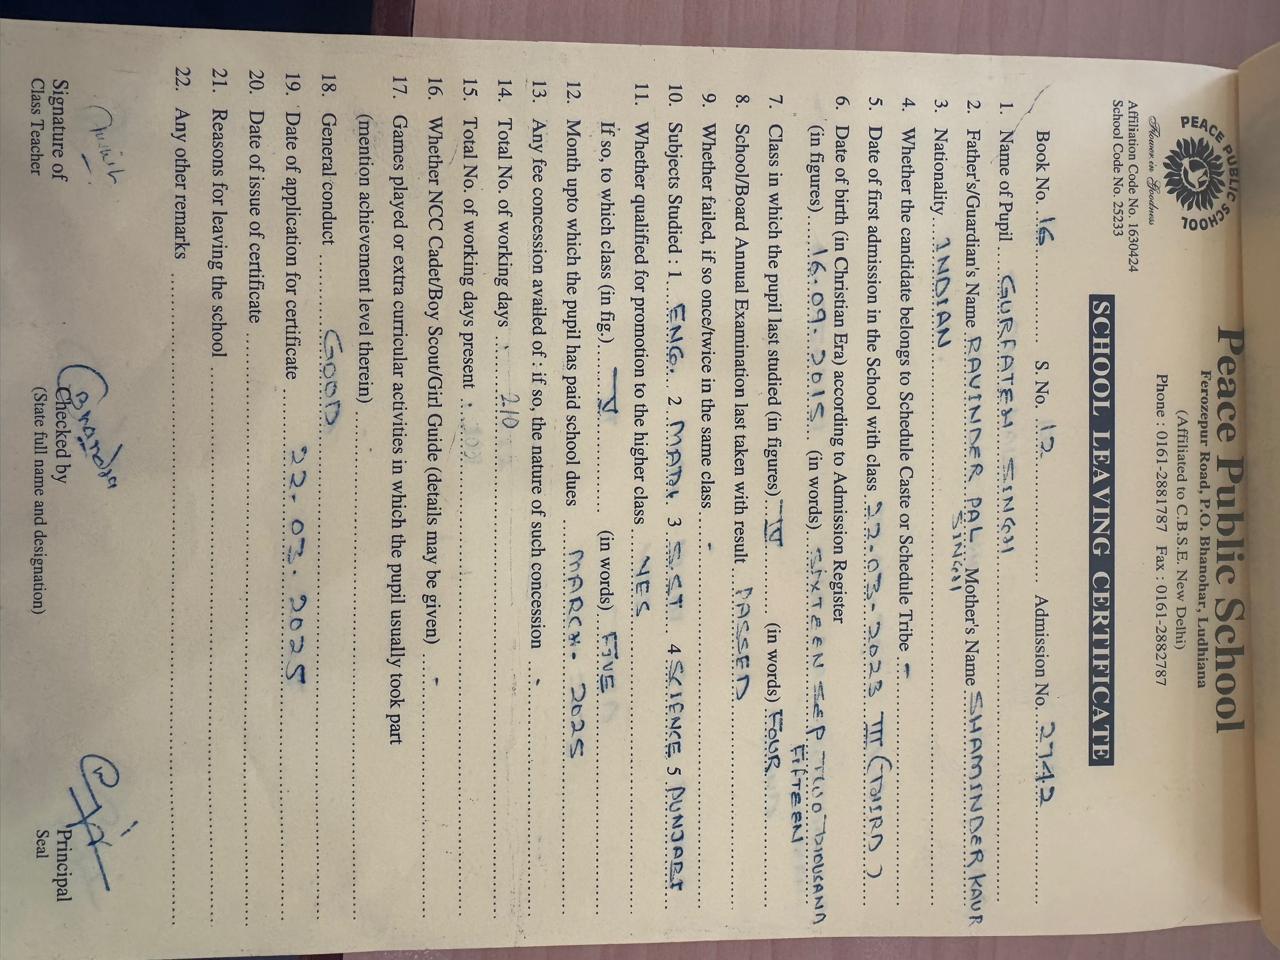 Peace Public School
Ferozepur Road, P.O. Bhanohar, Ludhiana
(Affiliated to C.B.S.E. New Delhi)
Phone : 0161-2881787 Fax : 0161-2882787
PEACE PUBLIC SCHOOL
Flower in Goodness
Affiliation Code No. 1630424
School Code No. 25233
SCHOOL LEAVING CERTIFICATE
Book No. 16 S. No. 12 Admission No. 2742
1. Name of Pupil GURFATEH SINGH
2. Father's/Guardian's Name RAVINDER PAL SINGH Mother's Name SHAMINDER KAUR
3. Nationality INDIAN
4. Whether the candidate belongs to Schedule Caste or Schedule Tribe -
5. Date of first admission in the School with class 22-03-2023 III (THIRD)
6. Date of birth (in Christian Era) according to Admission Register
(in figures) 16.09.2015 (in words) SIXTEEN SEP TWO THOUSAND FIFTEEN
7. Class in which the pupil last studied (in figures) IV (in words) FOUR
8. School/Board Annual Examination last taken with result PASSED
9. Whether failed, if so once/twice in the same class -
10. Subjects Studied : 1 ENG. 2 MATH. 3 S.ST. 4 SCIENCE 5 PUNJABI
11. Whether qualified for promotion to the higher class YES
If so, to which class (in fig.) V (in words) FIVE
12. Month upto which the pupil has paid school dues MARCH. 2025
13. Any fee concession availed of : if so, the nature of such concession -
14. Total No. of working days 210
15. Total No. of working days present
16. Whether NCC Cadet/Boy Scout/Girl Guide (details may be given) -
17. Games played or extra curricular activities in which the pupil usually took part
(mention achievement level therein)
18. General conduct GOOD
19. Date of application for certificate 22.03.2025
20. Date of issue of certificate
21. Reasons for leaving the school
22. Any other remarks
Signature of
Class Teacher
Checked by
(State full name and designation)
Principal
Seal